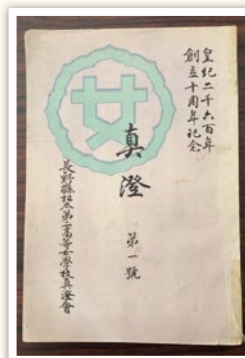 皇紀二千六百年
創立十周年記念
女
真澄
第一號
長野縣松本第二高等女學校真澄會